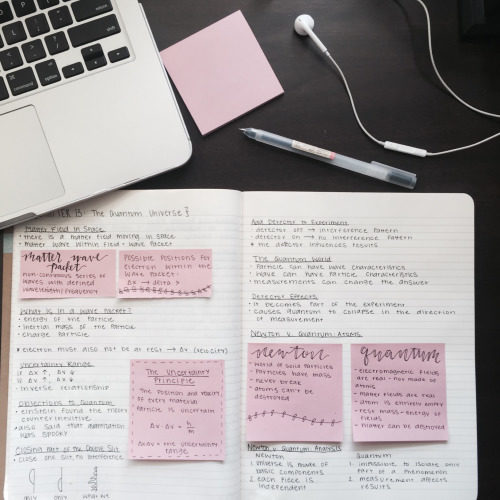 TER 13: The Quantum Universe
Matter Field in Space
• there is a matter field moving in space
• matter wave within field = wave packet
matter wave packet
non-continuous series of
waves with defined
wavelength/frequency
Possible positions for
electron within the
wave packet:
Δx → delta x
What is in a wave packet?
• energy of the particle
• inertial mass of the particle
• charge particle
* electron must also not be at rest → Δv (velocity)
Uncertainty Range
if Δx ↑, Δv ↓
if Δv ↑, Δx ↓
• inverse relationship
Objections to Quantum
• einstein found the theory
counterintuitive
• also said that
was spooky
The Uncertainty
Principle
The position and velocity
of every material
particle is uncertain
Δx·Δv = h/m
Δx·Δv = the uncertainty
range
Closing part of the Double Slit
• close one slit, no interference
only
only
Add Detector to Experiment
• detector off → interference pattern
• detector on → no interference pattern
* the detector influences results
The Quantum World
• Particle can have wave characteristics
• wave can have particle characteristics
• measurements can change the answer
Detector Effects
• It becomes part of the experiment
• causes quantum to collapse in the direction
of measurement
Newton v. Quantum Atoms
newton
• world of solid particles
• particles have mass
• never break
• atoms can't be
destroyed
quantum
• electromagnetic fields
are real - not made of
atoms
• matter fields are real
• atom is entirely empty
• rest mass = energy of
fields
• matter can be destroyed
Newton v. Quantum Analysis
Newton
1. universe is made of
basic components
2. each piece is
independent
Quantum
1. impossible to isolate one
part of a phenomenon
2. measurement affects
results